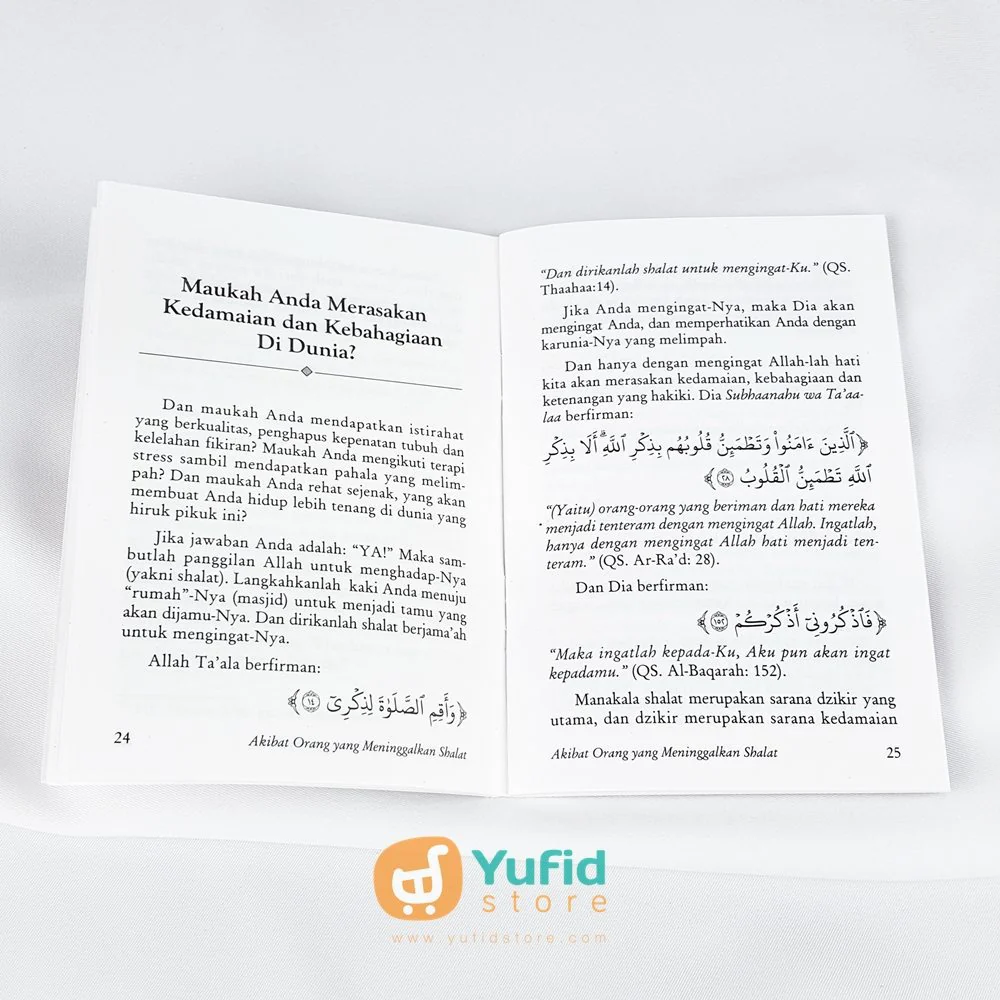 Maukah Anda Merasakan
Kedamaian dan Kebahagiaan
Di Dunia?
Dan maukah Anda mendapatkan istirahat
yang berkualitas, penghapus kepenatan tubuh dan
kelelahan fikiran? Maukah Anda mengikuti terapi
stress sambil mendapatkan pahala yang melim-
pah? Dan maukah Anda rehat sejenak, yang akan
membuat Anda hidup lebih tenang di dunia yang
hiruk pikuk ini?
Jika jawaban Anda adalah: “YA!” Maka sam-
butlah panggilan Allah untuk menghadap-Nya
(yakni shalat). Langkahkanlah kaki Anda menuju
“rumah”-Nya (masjid) untuk menjadi tamu yang
akan dijamu-Nya. Dan dirikanlah shalat berjama’ah
untuk mengingat-Nya.
Allah Ta’ala berfirman:
﴿وَأَقِمِ ٱلصَّلَوٰةَ لِذِكْرِىٓ ١٤﴾
24
Akibat Orang yang Meninggalkan Shalat
“Dan dirikanlah shalat untuk mengingat-Ku.” (QS.
Thaahaa:14).
Jika Anda mengingat-Nya, maka Dia akan
mengingat Anda, dan memperhatikan Anda dengan
karunia-Nya yang melimpah.
Dan hanya dengan mengingat Allah-lah hati
kita akan merasakan kedamaian, kebahagiaan dan
ketenangan yang hakiki. Dia Subhaanahu wa Ta’aa-
laa berfirman:
﴿ٱلَّذِينَ ءَامَنُوا۟ وَتَطْمَئِنُّ قُلُوبُهُم بِذِكْرِ ٱللَّهِ ۗ أَلَا بِذِكْرِ
ٱللَّهِ تَطْمَئِنُّ ٱلْقُلُوبُ ٢٨﴾
“(Yaitu) orang-orang yang beriman dan hati mereka
menjadi tenteram dengan mengingat Allah. Ingatlah,
hanya dengan mengingat Allah hati menjadi ten-
teram.” (QS. Ar-Ra’d: 28).
Dan Dia berfirman:
﴿فَٱذْكُرُونِىٓ أَذْكُرْكُمْ ١٥٢﴾
“Maka ingatlah kepada-Ku, Aku pun akan ingat
kepadamu.” (QS. Al-Baqarah: 152).
Manakala shalat merupakan sarana dzikir yang
utama, dan dzikir merupakan sarana kedamaian
Akibat Orang yang Meninggalkan Shalat
25
Yufid
store
www.yufidstore.com